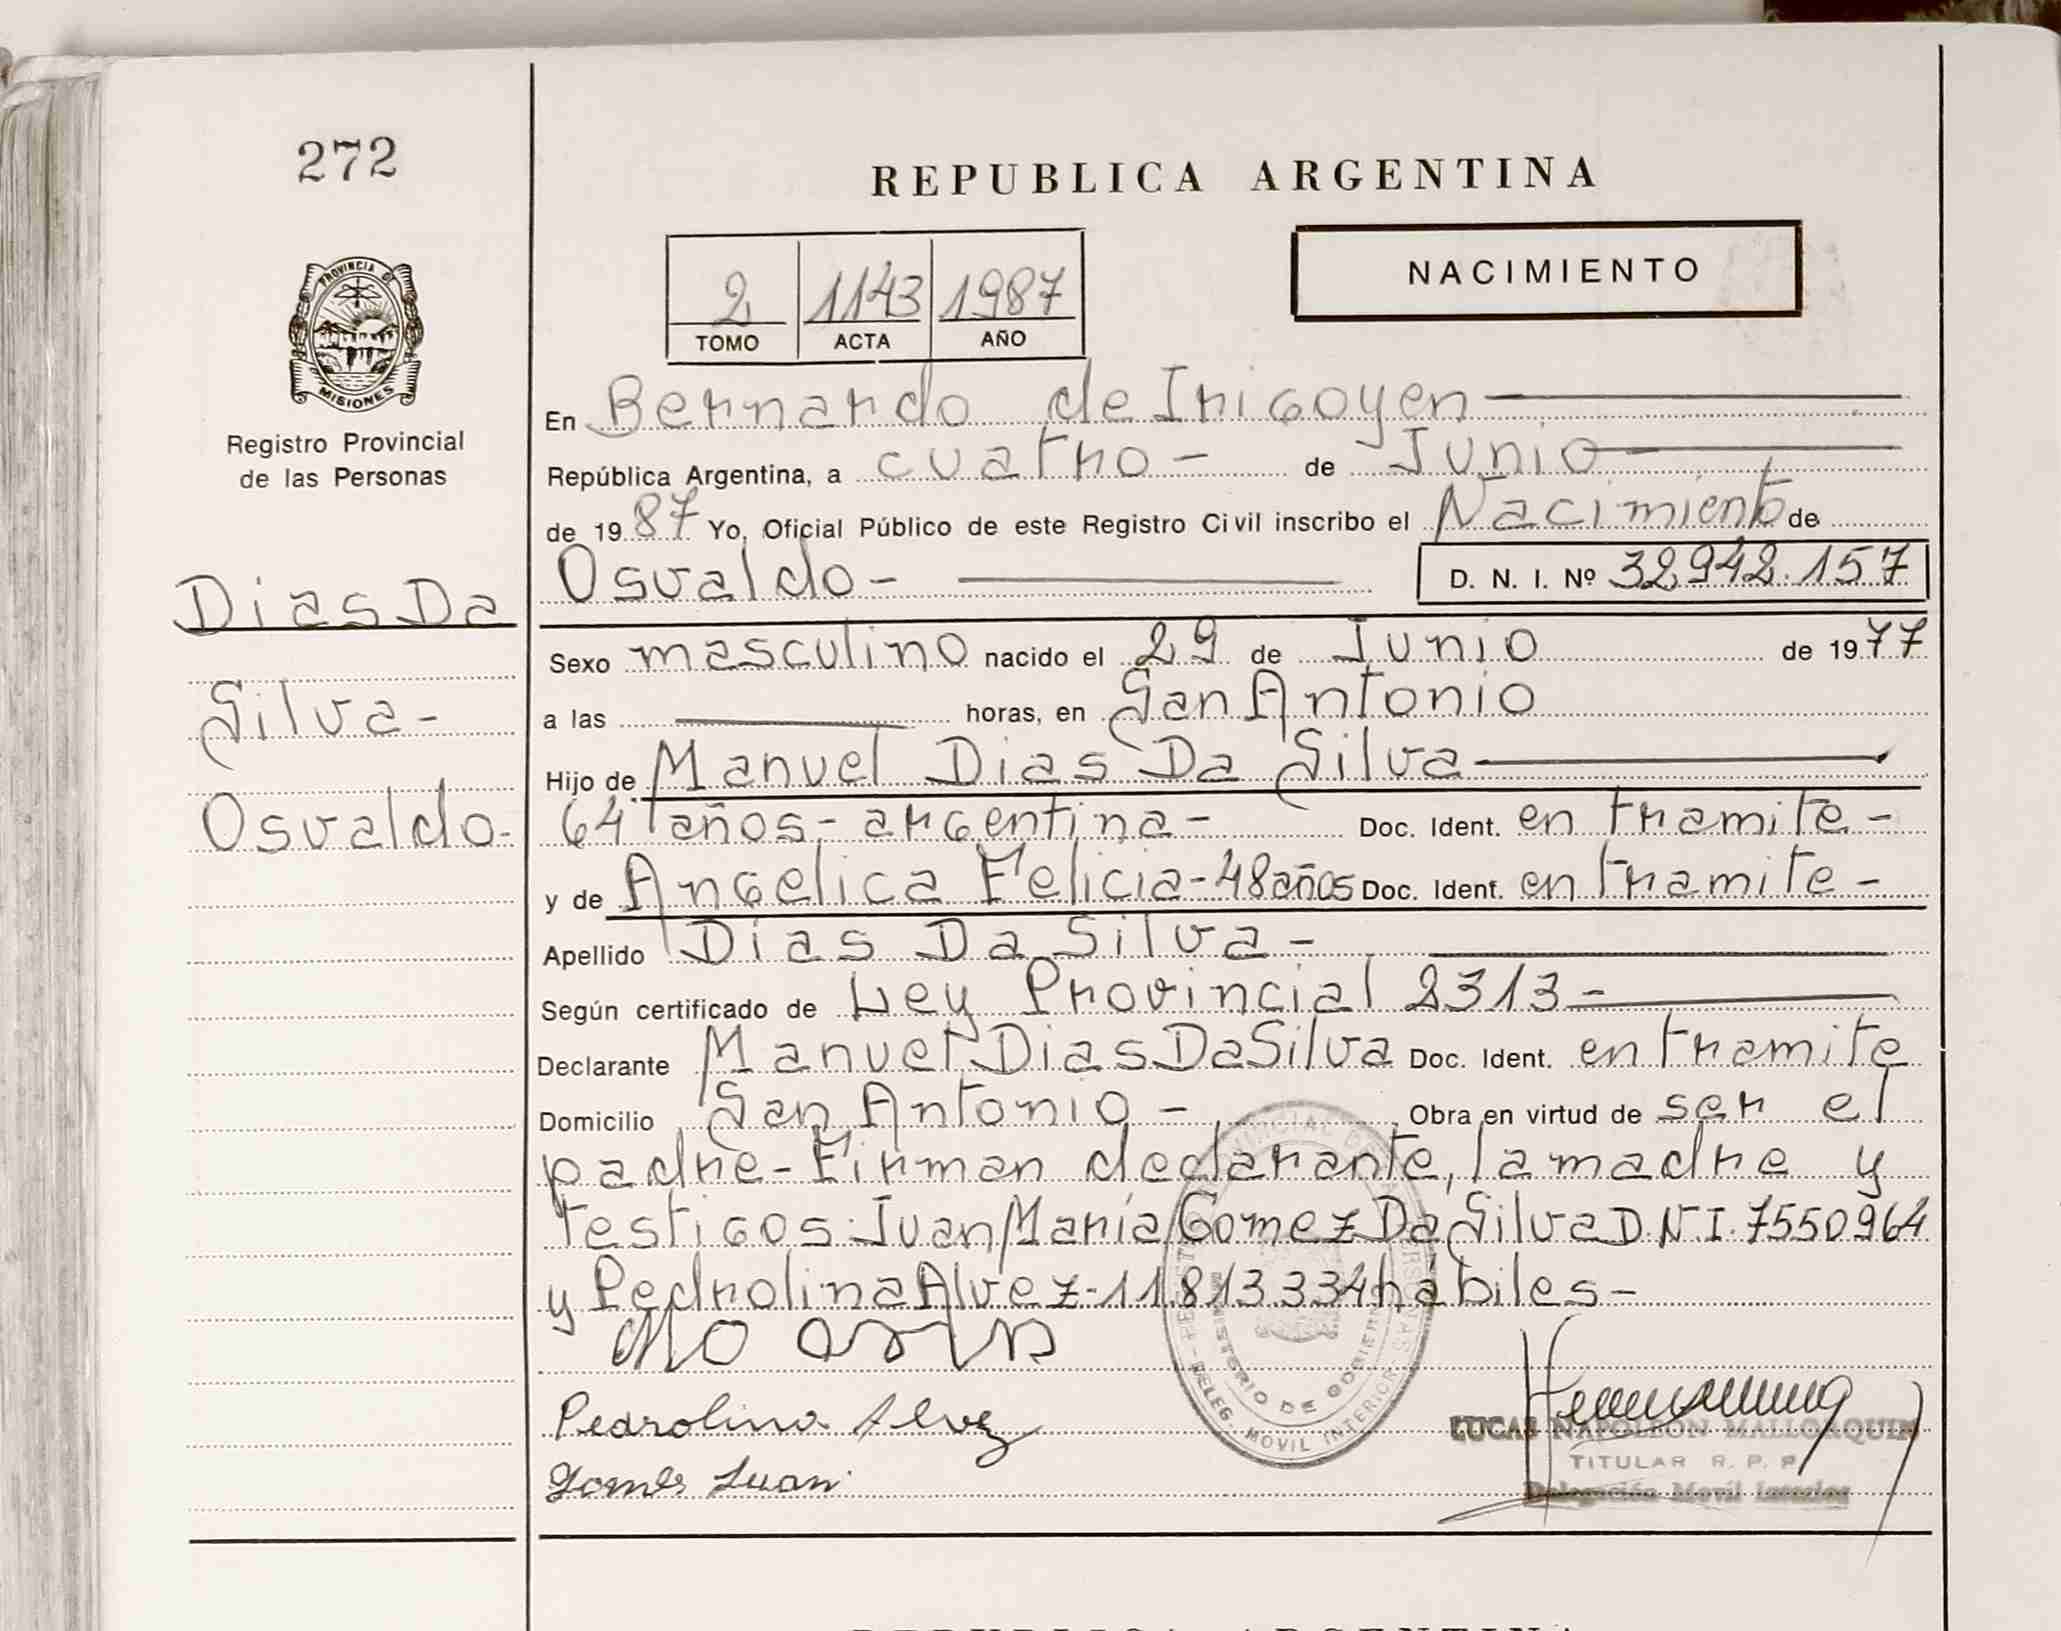 272
REPUBLICA ARGENTINA
NACIMIENTO
2 1143 1987
TOMO ACTA AÑO
PROVINCIA DE
MISIONES
Registro Provincial
de las Personas
Dias Da
Silva-
Osvaldo-
En Bernardo de Irigoyen
República Argentina, a cuatro - de Junio
de 1987 Yo, Oficial Público de este Registro Civil inscribo el Nacimiento de
Osvaldo - D. N. I. Nº 32.942.157
Sexo masculino nacido el 29 de Junio de 1977
a las horas, en San Antonio
Hijo de Manuel Dias Da Silva
64 años - argentina - Doc. Ident. en tramite -
y de Angelica Felicia - 48 años Doc. Ident. en tramite -
Apellido Dias Da Silva -
Según certificado de Ley Provincial 2313 -
Declarante Manuel Dias Da Silva Doc. Ident. en tramite
Domicilio San Antonio - Obra en virtud de ser el
padre - Firman declarante, la madre y
testigos: Juan María Gomez Da Silva D.N.I. 7550964
y Pedrolina Alvez - 11.813.334 hábiles -
Pedrolina Alvez
Gomes Juan
MINISTERIO DE GOBIERNO
DELEG. MOVIL INTERIOR
LUCAS NAPOLEON MALLORQUIN
TITULAR R. P. P.
Delegación Movil Interior
REPUBLICA ARGENTINA